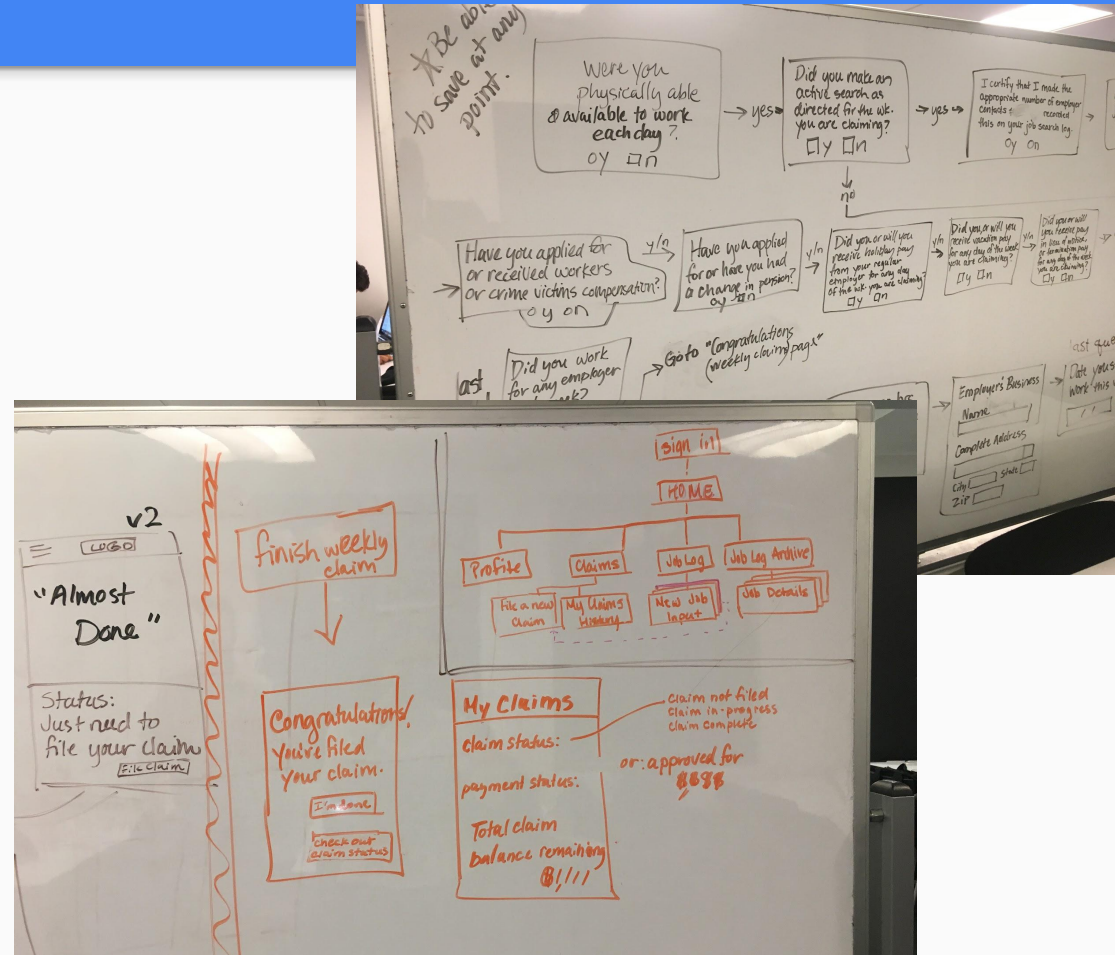 * Be able
to save at any
point.
Were you
physically able
& available to work
each day?
oy □n
→ yes
Did you make an
active search as
directed for the wk.
you are claiming?
□y □n
→ yes →
I certify that I made the
appropriate number of employer
contacts + recorded
this on your job search log.
oy on
no
Have you applied for
or received workers
or crime victims compensation?
oy on
y/n
Have you applied
for or have you had
a change in pension?
oy □n
y/n
Did you or will you
receive holiday pay
from your regular
employer for any day
of the wk. you are claiming?
□y □n
y/n
Did you or will you
receive vacation pay
for any day of the week
you are claiming?
□y □n
y/n
Did you or will
you receive pay
in lieu of notice
or termination pay
for any day of the week
you are claiming?
□y □n
last
Did you work
for any employer
Go to "Congratulations
(weekly claim) page"
Employer's Business
Name
Complete Address
City State
Zip
last que
Date you s
work this
v2
LOGO
"Almost
Done"
Status:
Just need to
file your claim
File Claim
finish weekly
claim
Congratulations!
You've filed
your claim.
I'm done
check out
claim status
sign in
HOME
Profile
Claims
Job Log
Job Log Archive
File a new
claim
My Claims
History
New Job
Input
Job Details
My Claims
claim status:
payment status:
Total claim
balance remaining
$1,111
claim not filed
claim in-progress
claim complete
or: approved for
$$$$